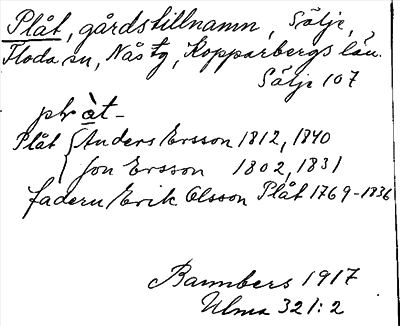 Plåt, gårdstillnamn, Sälje,
Floda sn, Nås tg, Kopparbergs län.
Sälje 107
plràt-
Plåt { Anders Ersson 1812, 1840
Jon Ersson 1802, 1831
fadern Erik Olsson Plåt 1769-1836
Bannbers 1917
Ulma 321:2